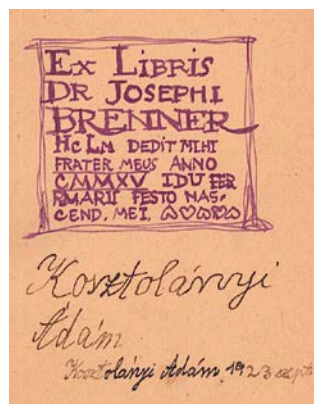 Ex Libris
Dr Josephi
Brenner
Hc Ln dedit mihi
frater meus anno
CMMXV Idu Feb
rmarii festo nas-
cend. mei.
Kosztolányi
Ádám
Kosztolányi Ádám 1923 szept